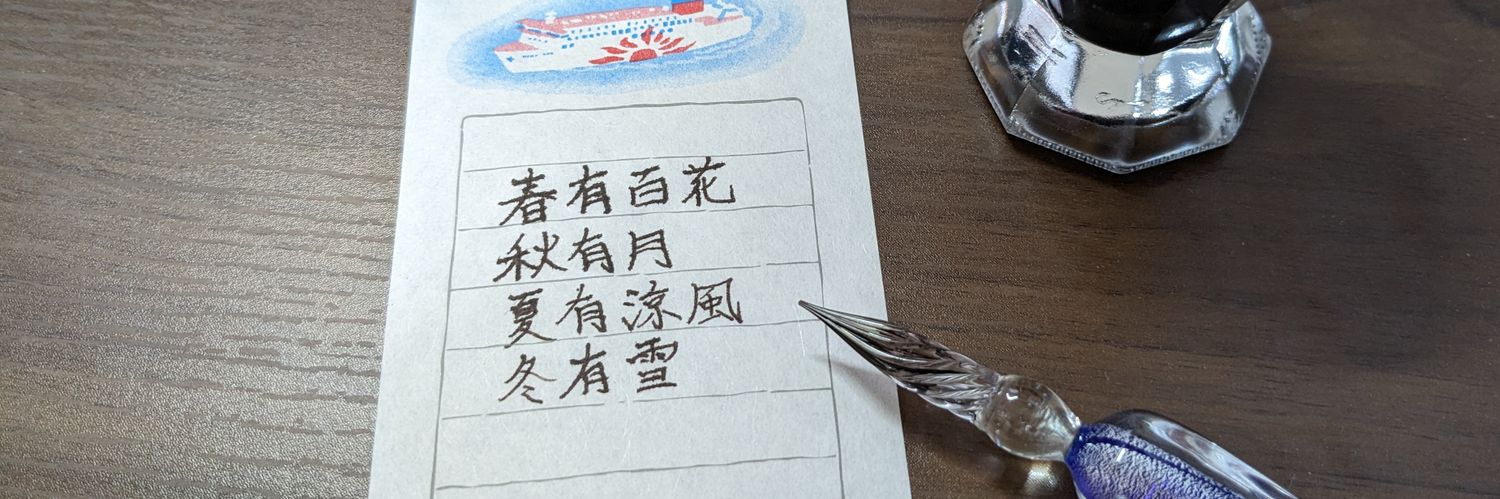 春有百花
秋有月
夏有涼風
冬有雪